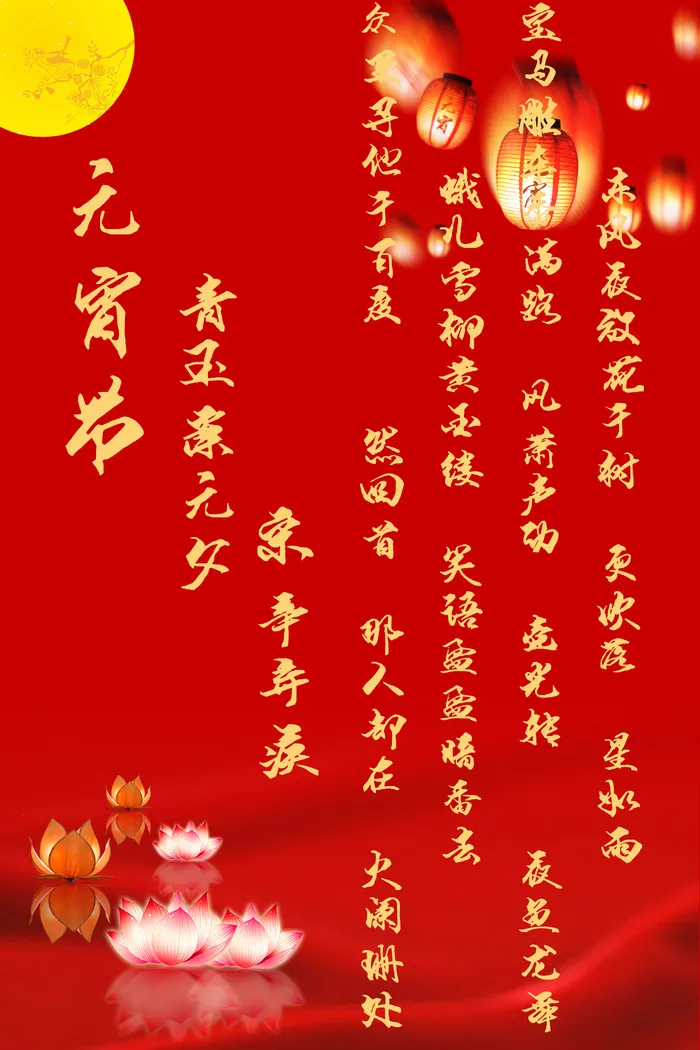 元宵节
青玉案元夕
宋辛弃疾
东风夜放花千树 更吹落 星如雨
宝马雕车香满路 风萧声动 壶光转 夜鱼龙舞
蛾儿雪柳黄玉缕 笑语盈盈暗香去
众里寻他千百度 然回首 那人却在 火阑珊处
元宵